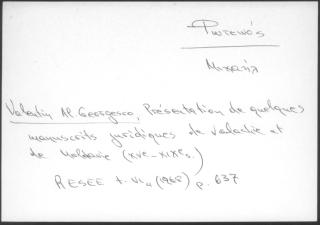 Φωτεινός
Μιχαήλ
Valentin Al Georgesco, Présentation de quelques
manuscrits juridiques de Valachie et
de Moldavie (XVe-XIXes.)
RESEE t. VI4 (1968) p. 637